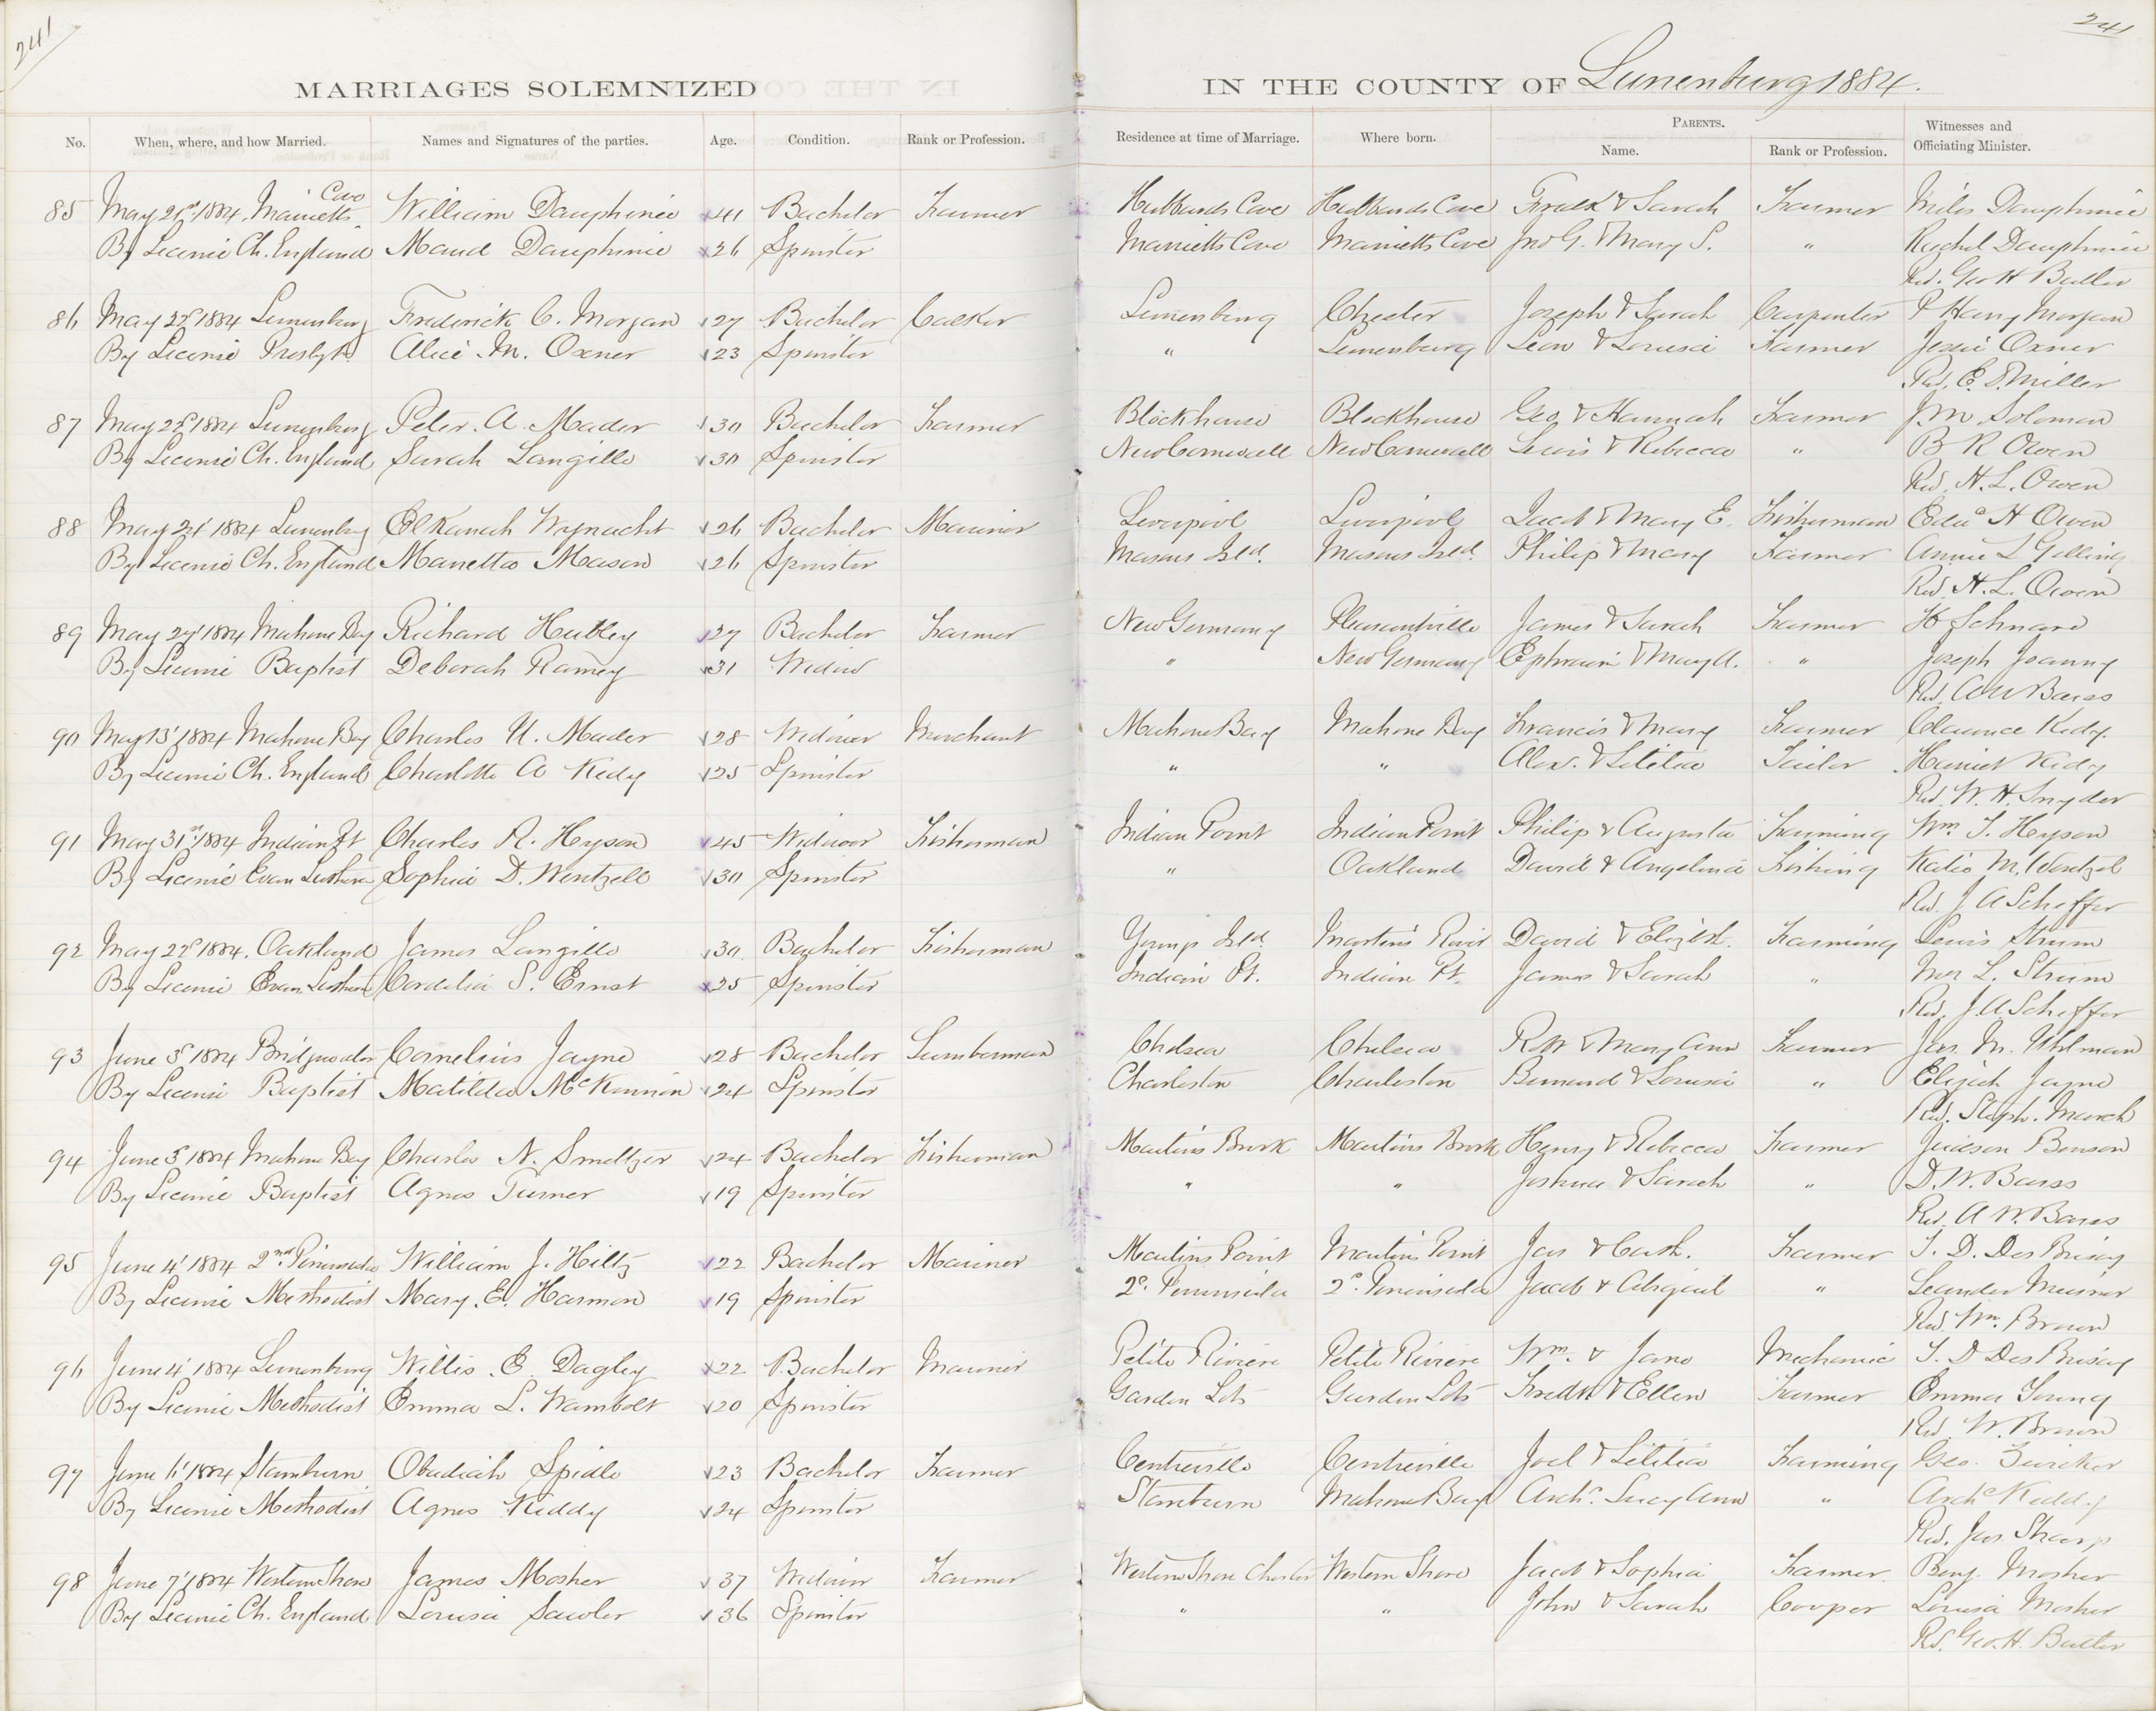 241
241
MARRIAGES SOLEMNIZED
IN THE COUNTY OF Lunenburg 1884.
No. When, where, and how Married. Names and Signatures of the parties. Age. Condition. Rank or Profession. Residence at time of Marriage. Where born. PARENTS. Name. Rank or Profession. Witnesses and Officiating Minister.
Cove
85 May 21st 1884. Marrietts William Dauphinee 41 Bachelor Farmer Hubbards Cove Hubbards Cove Fredk & Sarah Farmer Miles Dauphinee
By License Ch. England Maud Dauphinee 26 Spinster Marrietts Cove Marrietts Cove Jno G. & Mary S. " Rachel Dauphinee
Rev. Geo H Butler
86 May 22d 1884 Lunenburg Frederick C. Morgan 27 Bachelor Calker Lunenburg Chester Joseph & Sarah Carpenter P Harry Morgan
By License Presbytn Alice M. Oxner 23 Spinster " Lunenburg Leon & Louisa Farmer Jessie Oxner
Rev. E. D. Miller
87 May 22d 1884 Lunenburg Peter A. Mader 30 Bachelor Farmer Blockhouse Blockhouse Geo & Hannah Farmer J. M. Solomon
By License Ch. England Sarah Langille 30 Spinster New Cornwall New Cornwall Lewis & Rebecca " B R Owen
Rev. H. L. Owen
88 May 24' 1884 Lunenburg Elkanah Wynacht 26 Bachelor Mariner Liverpool Liverpool Jacob & Mary E. Fisherman Edwd H Owen
By License Ch. England Manetta Mason 26 Spinster Masons Isld. Masons Isld. Philip & Mary Farmer Annie L Gelling
Rev. H. L. Owen
89 May 24' 1884 Mahone Bay Richard Hubley 27 Bachelor Farmer New Germany Pleasantville James & Sarah Farmer H Schnare
By License Baptist Deborah Ramey 31 Widow " New Germany Ephraim & Mary A. " Joseph Joanny
Rev. A W Barss
90 May 13' 1884 Mahone Bay Charles U. Mader 28 Widower Merchant Mahone Bay Mahone Bay Francis & Mary Farmer Clarence Kedy
By License Ch. England Charlotte A Kedy 25 Spinster " " Alex. & Letitia Tailor Harriet Kedy
Rev. W. H. Snyder
91 May 31st 1884 Indian Pt Charles R. Heyson 45 Widower Fisherman Indian Point Indian Point Philip & Augusta Farming Wm. T. Heyson
By License Evan Luthern Sophia D. Wentzell 30 Spinster " Oakland David & Angelina Fishing Katie M. Wentzel
Rev. J A Scheffer
92 May 22d 1884. Oakland James Langille 30 Bachelor Fisherman Youngs Isld. Martins River David & Elizbth. Farming Lewis Strum
By License Evan Luthern Cordelia S. Ernst 25 Spinster Indian Pt. Indian Pt. James & Sarah " Mr L. Strum
Rev. J. A Scheffer
93 June 3d 1884 Bridgwater Cornelius Jayne 28 Bachelor Lumberman Chelsea Chelsea Robt & Mary Ann Farmer Jas. M. Uhlman
By License Baptist Matilda McKennon 24 Spinster Charleston Charleston Bernard & Louisa " Elizath Jayne
Rev. Steph. March
94 June 3d 1884 Mahone Bay Charles N. Smeltzer 24 Bachelor Fisherman Martins Brook Martins Brook Henry & Rebecca Farmer Judson Benson
By License Baptist Agnes Turner 19 Spinster " " Joshua & Sarah " D. W. Barss
Rev. A W. Barss
95 June 4' 1884 2nd Peninsula William J. Hiltz 22 Bachelor Mariner Martins Point Martins Point Jas & Cath. Farmer T. D. Des Brisay
By License Methodist Mary E. Harmon 19 Spinster 2d. Peninsula 2d. Peninsula Jacob & Abigail " Leander Meisner
Rev. Wm. Brown
96 June 4' 1884 Lunenburg Willis E. Dagley 22 Bachelor Mariner Petite Riviere Petite Riviere Wm. & Jane Mechanic T. D Des Brisay
By License Methodist Emma L. Wambolt 20 Spinster Garden Lots Garden Lots Fredk & Ellen Farmer Emma Young
Rev. W. Brown
97 June 11' 1884 Stanburn Obadiah Spidle 23 Bachelor Farmer Centreville Centreville Joel & Letitia Farming Geo. Zwicker
By License Methodist Agnes Keddy 24 Spinster Stanburn Mahone Bay Archd. Lucy Ann " Archd Keddy
Rev. Jas. Sharp
98 June 7' 1884 Western Shore James Mosher 37 Widower Farmer Western Shore Chester Western Shore Jacob & Sophia Farmer Benj. Mosher
By License Ch. England Louisa Sawler 36 Spinster " " John & Sarah Cooper Louisa Mosher
Rd. Geo. H. Butler